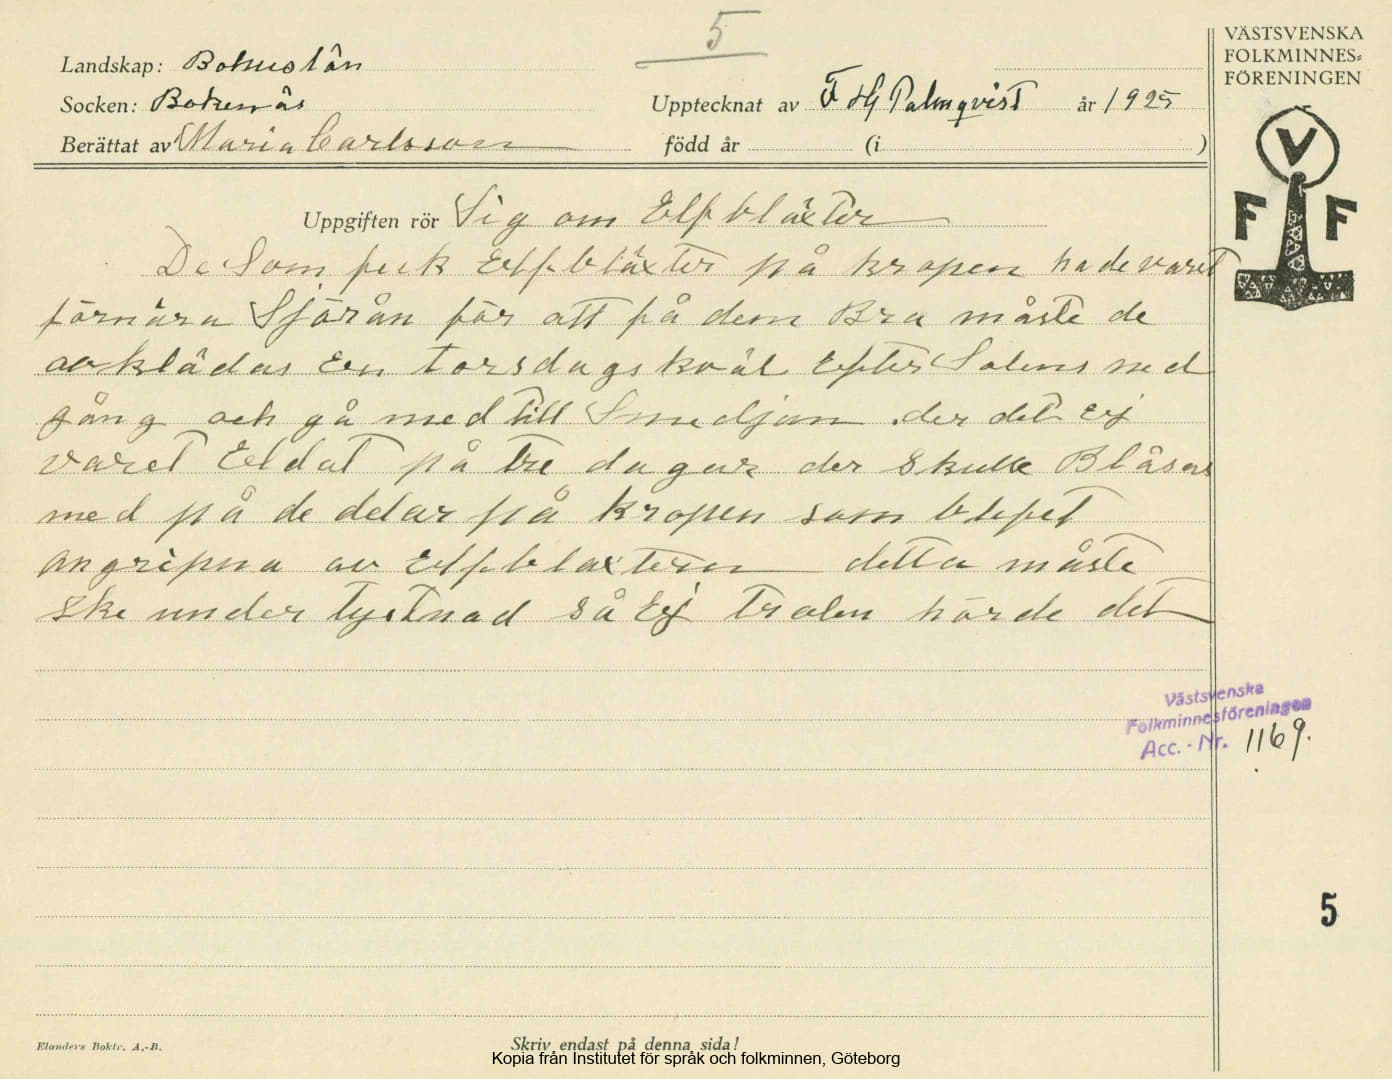 5
Landskap: Bohuslän
Socken: Bokenäs
Upptecknat av F Hj Palmqvist år 1925
Berättat av Maria Carlsson
född år (i )
VÄSTSVENSKA
FOLKMINNES=
FÖRENINGEN
V
F F
Uppgiften rör Sig om Elfbläxter
De Som feck Elfbläxter på kropen hade varet
förnära Sjörån för att få dem Bra måste de
avklädas En torsdagskväl Efter Solens ned
gång och gå med till Smedjan der det Ej
varet Eldat på tre dagar der skulle Blåsas
med på de delar på kropen som blefet
angripna av Elfblaxteren detta måste
ske under tystnad så Ej Trolen hörde det
Västsvenska
Folkminnesföreningen
Acc.-Nr. 1169.
5
Elanders Boktr. A.-B.
Skriv endast på denna sida!
Kopia från Institutet för språk och folkminnen, Göteborg